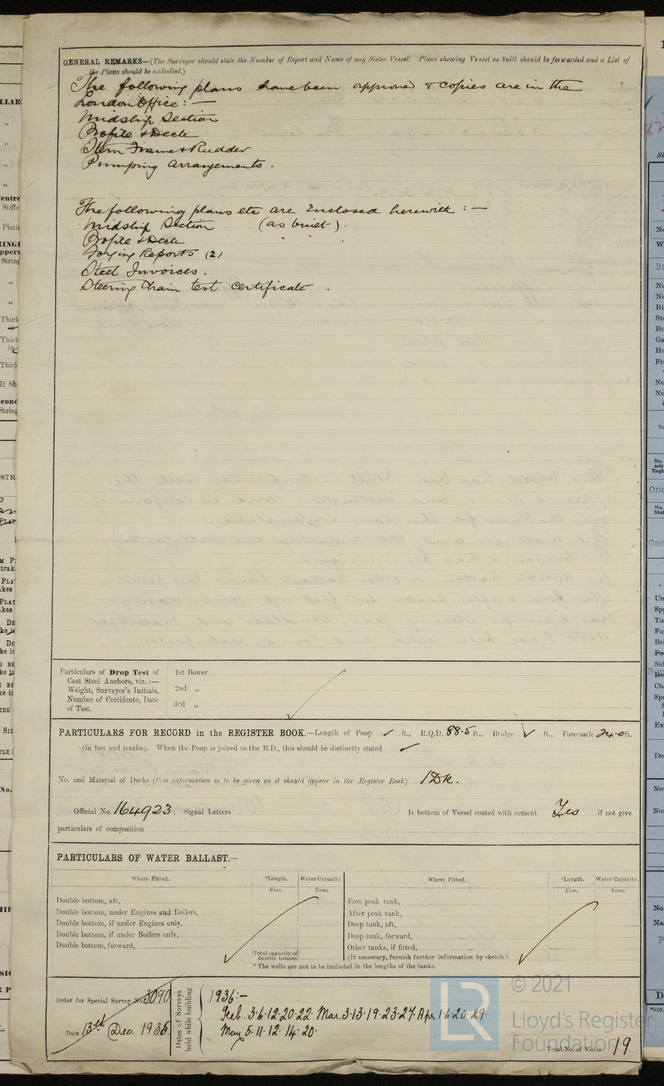 GENERAL REMARKS—(The Surveyor should state the Number of Report and Name of any Sister Vessel. Plans showing Vessel as built should be forwarded and a List of
the Plans should be embodied.)
The following plans have been approved & copies are in the
London Office :—
Midship Section
Profile & Deck
Stern Frame & Rudder
Pumping Arrangements.
The following plans etc are Enclosed herewith :—
Midship Section (as built).
Profile & Deck " "
Forging Reports (2)
Steel Invoices.
Steering Chain test certificate.
Particulars of Drop Test of
Cast Steel Anchors, viz. :—
Weight, Surveyor's Initials,
Number of Certificate, Date
of Test.
1st Bower
2nd „
3rd „
PARTICULARS FOR RECORD in the REGISTER BOOK.—Length of Poop ✓ ft., R.Q.D. 88·5 ft., Bridge ✓ ft., Forecastle 24·0 ft.
(in feet and tenths). When the Poop is joined to the B.D., this should be distinctly stated ✓
No. and Material of Decks (this information is to be given as it should appear in the Register Book) 1 Dk.
Official No. 164923 ; Signal Letters Is bottom of Vessel coated with cement Yes if not give
particulars of composition
PARTICULARS OF WATER BALLAST.—
Where Fitted. *Length. Water Capacity. Where Fitted. *Length. Water Capacity.
Feet. Tons. Feet. Tons.
Double bottom, aft, Fore peak tank,
Double bottom, under Engines and Boilers, After peak tank,
Double bottom, if under Engines only, Deep tank, aft,
Double bottom, if under Boilers only, Deep tank, forward,
Double bottom, forward, Other tanks, if fitted,
Total capacity of double bottom (If necessary, furnish further information by sketch.)
* The wells are not to be included in the lengths of the tanks.
Order for Special Survey No. 3090
Date 13th Dec. 1935
Dates of Surveys held while building
1936:—
Feb. 3·6·12·20·22· Mar. 3·13·19·23·27· Apr. 1·6·20·29·
May 5·11·12·14·20·
Total No. of Visits 19
LR
© 2021
Lloyd's Register
Foundation